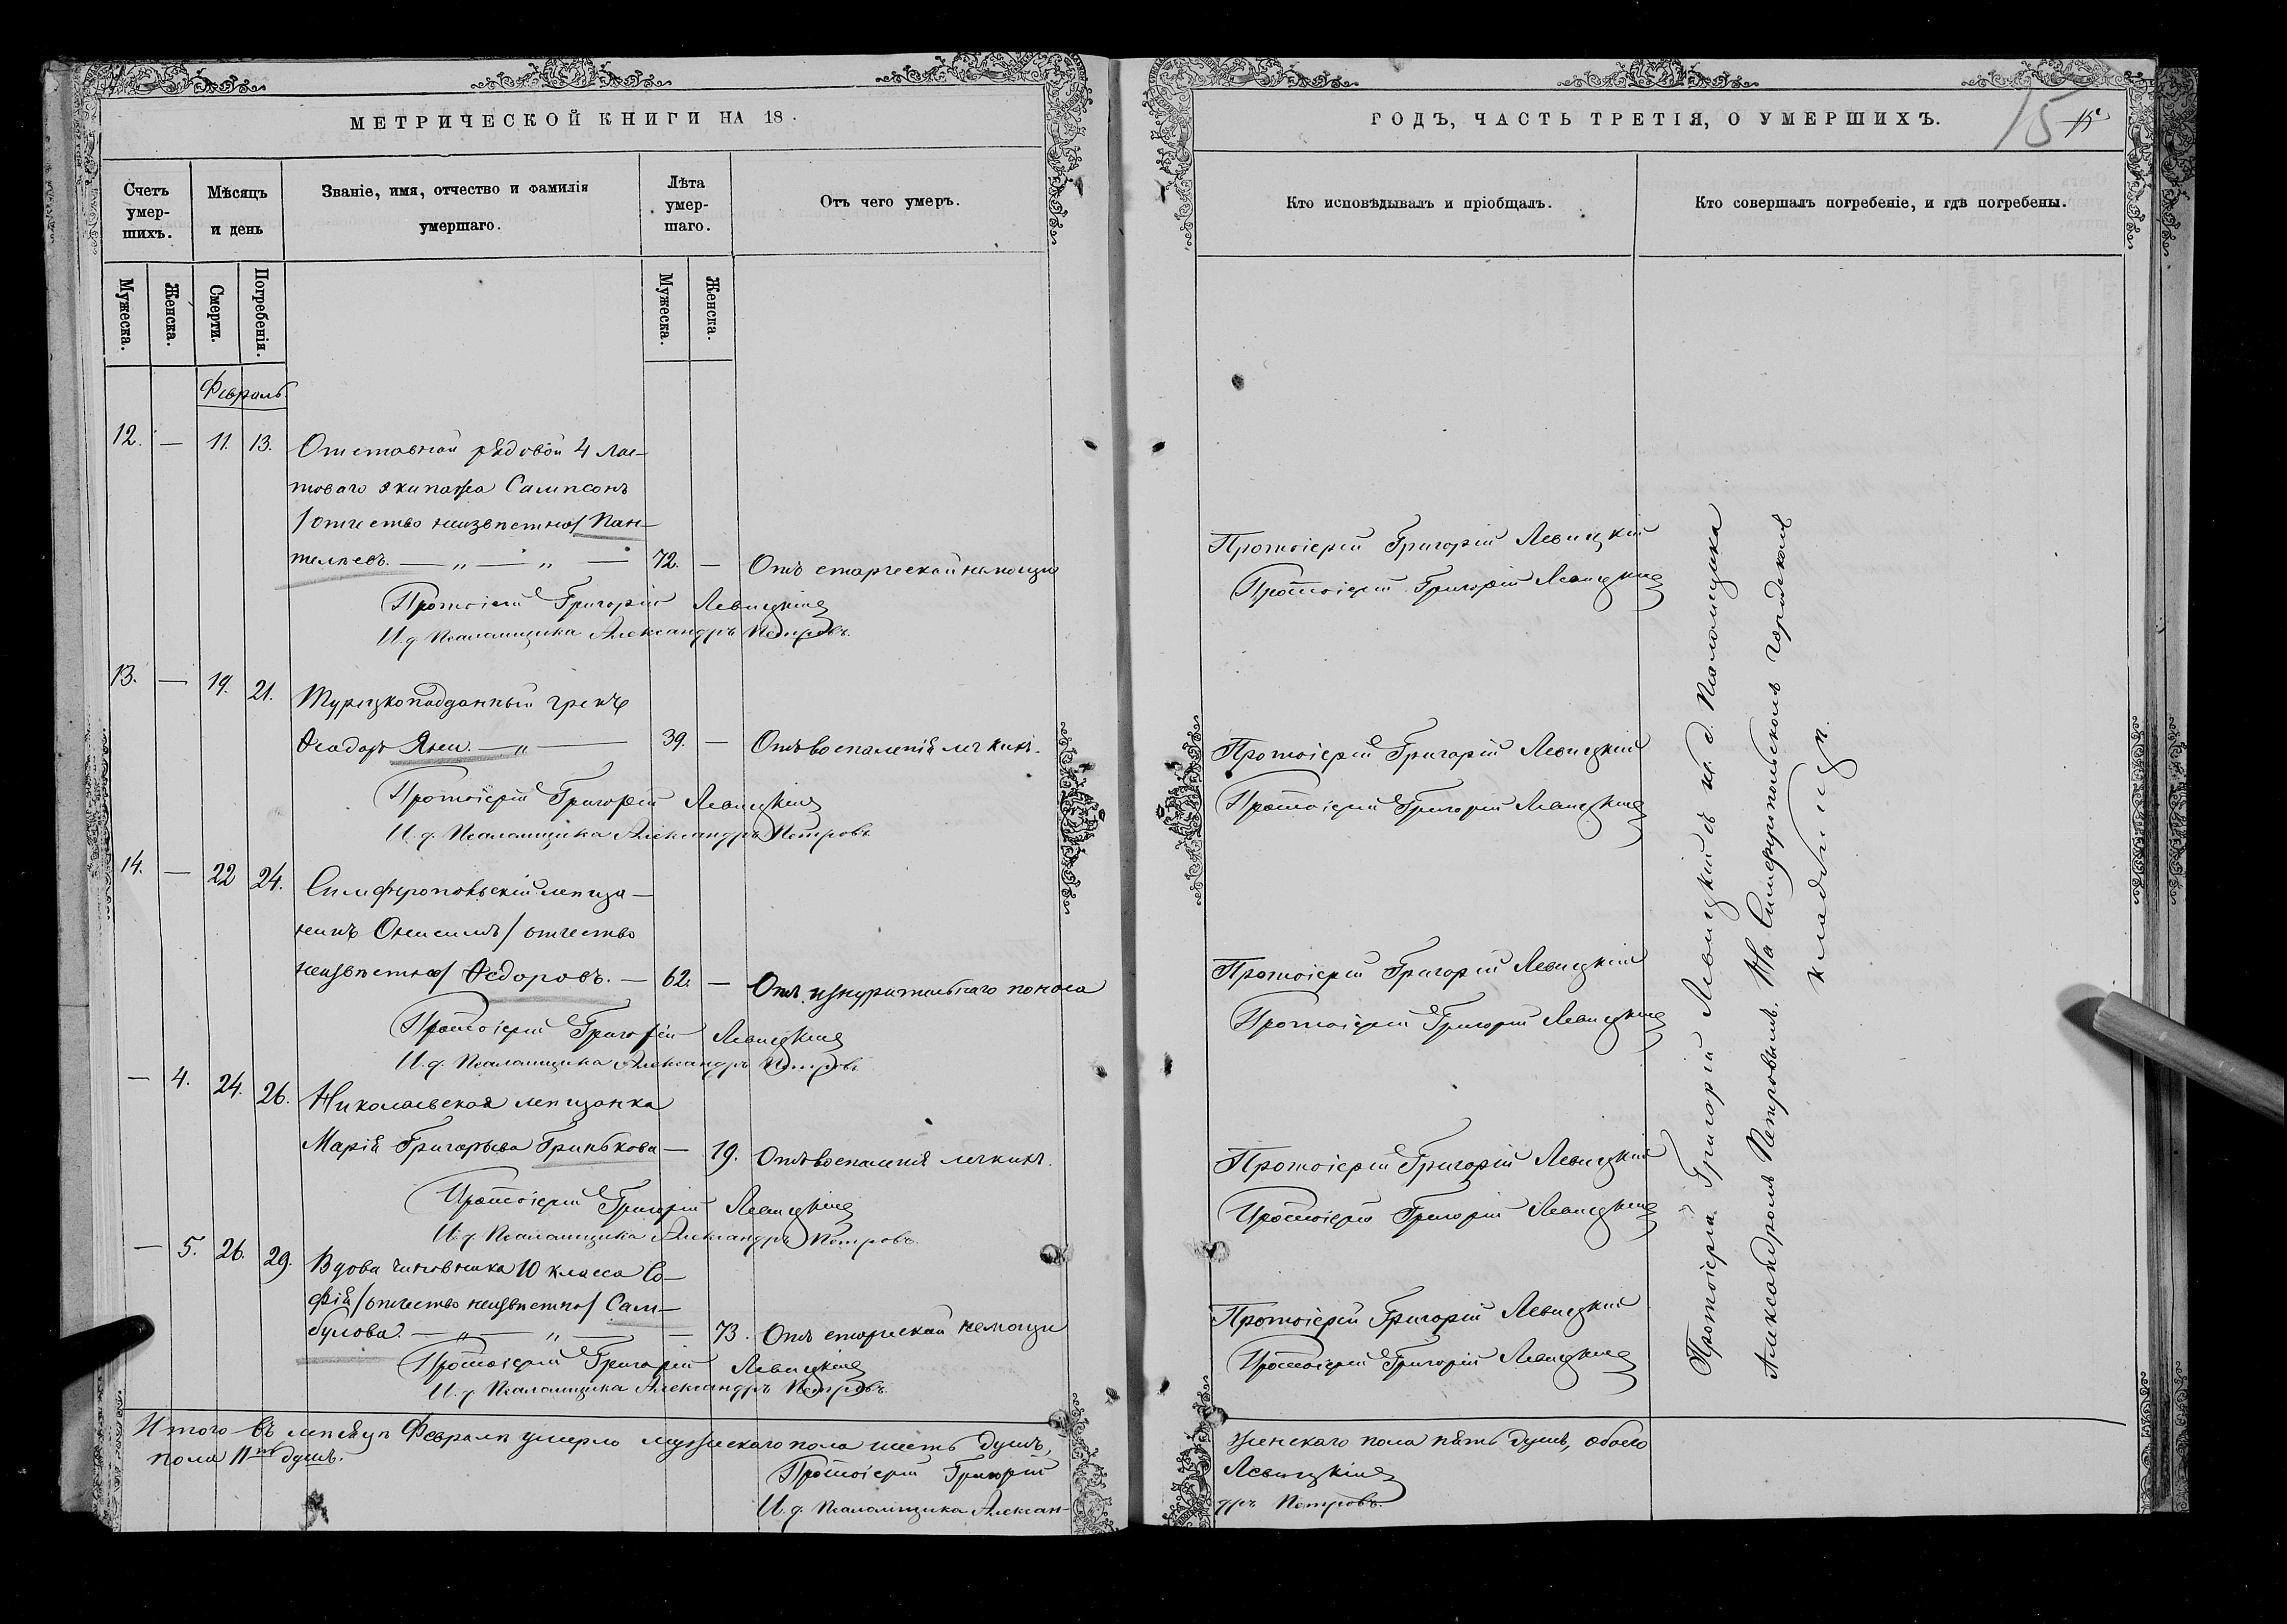 МЕТРИЧЕСКОЙ КНИГИ НА 18 .
Счетъ умер-
шихъ.
Мѣсяцъ
и день
Званіе, имя, отчество и фамилія
умершаго.
Лѣта
умер-
шаго.
Отъ чего умеръ.
Мужеска.
Женска.
Смерти.
Погребенія.
Мужеска.
Женска.
Февраль.
12. — 11. 13. Отставной рядовой 4 лас-
товаго экипажа Сампсонъ
/отчество неизвѣстно/ Пан-
телѣевъ. — „ — „ — 72. — Отъ старческой немощи
Протоіерей Григорій Левицкій
И. д. Псаломщика Александръ Петровъ.
13. — 19. 21. Турецкоподданный грекъ
Ѳеодоръ Яни. — „ — 39. — Отъ воспаленія легкихъ.
Протоіерей Григорій Левицкій
И. д. Псаломщика Александръ Петровъ
14. — 22 24. Симферопольскій мѣща-
нинъ Онисимъ / отчество
неизвѣстно/ Ѳедоровъ. — 62. — Отъ изнурительнаго поноса
Протоіерей Григорій Левицкій
И. д. Псаломщика Александръ Петровъ
— 4. 24. 26. Николаевская мѣщанка
Марія Григорьева Гринькова — 19. Отъ воспаленія легкихъ.
Протоіерей Григорій Левицкій
И. д. Псаломщика Александръ Петровъ.
— 5. 26. 29. Вдова чиновника 10 класса Со-
фія /отчество неизвѣстно/ Сам-
булова. — „ — „ — — 73. Отъ старческой немощи
Протоіерей Григорій Левицкій
И. д. Псаломщика Александръ Петровъ.
Итого въ мѣсяцѣ Февралѣ умерло мужескаго пола шесть душъ,
пола 11ть душъ.
Протоіерей Григорій
И. д. Псаломщика Алексан-
ГОДЪ, ЧАСТЬ ТРЕТІЯ, О УМЕРШИХЪ.
15
15
Кто исповѣдывалъ и пріобщалъ.
Кто совершалъ погребеніе, и гдѣ погребены.
Протоіерей Григорій Левицкій
Протоіерей Григорій Левицкій
Протоіерей Григорій Левицкій
Протоіерей Григорій Левицкій
Протоіерей Григорій Левицкій
Протоіерей Григорій Левицкій
Протоіерей Григорій Левицкій
Протоіерей Григорій Левицкій
Протоіерей Григорій Левицкій
Протоіерей Григорій Левицкій
Протоіерей Григорій Левицкій съ и. д. Псаломщика
Александромъ Петровымъ. На Симферопольскомъ городскомъ
кладбищѣ.
женскаго пола пять душъ, обоего
Левицкій
дръ Петровъ.